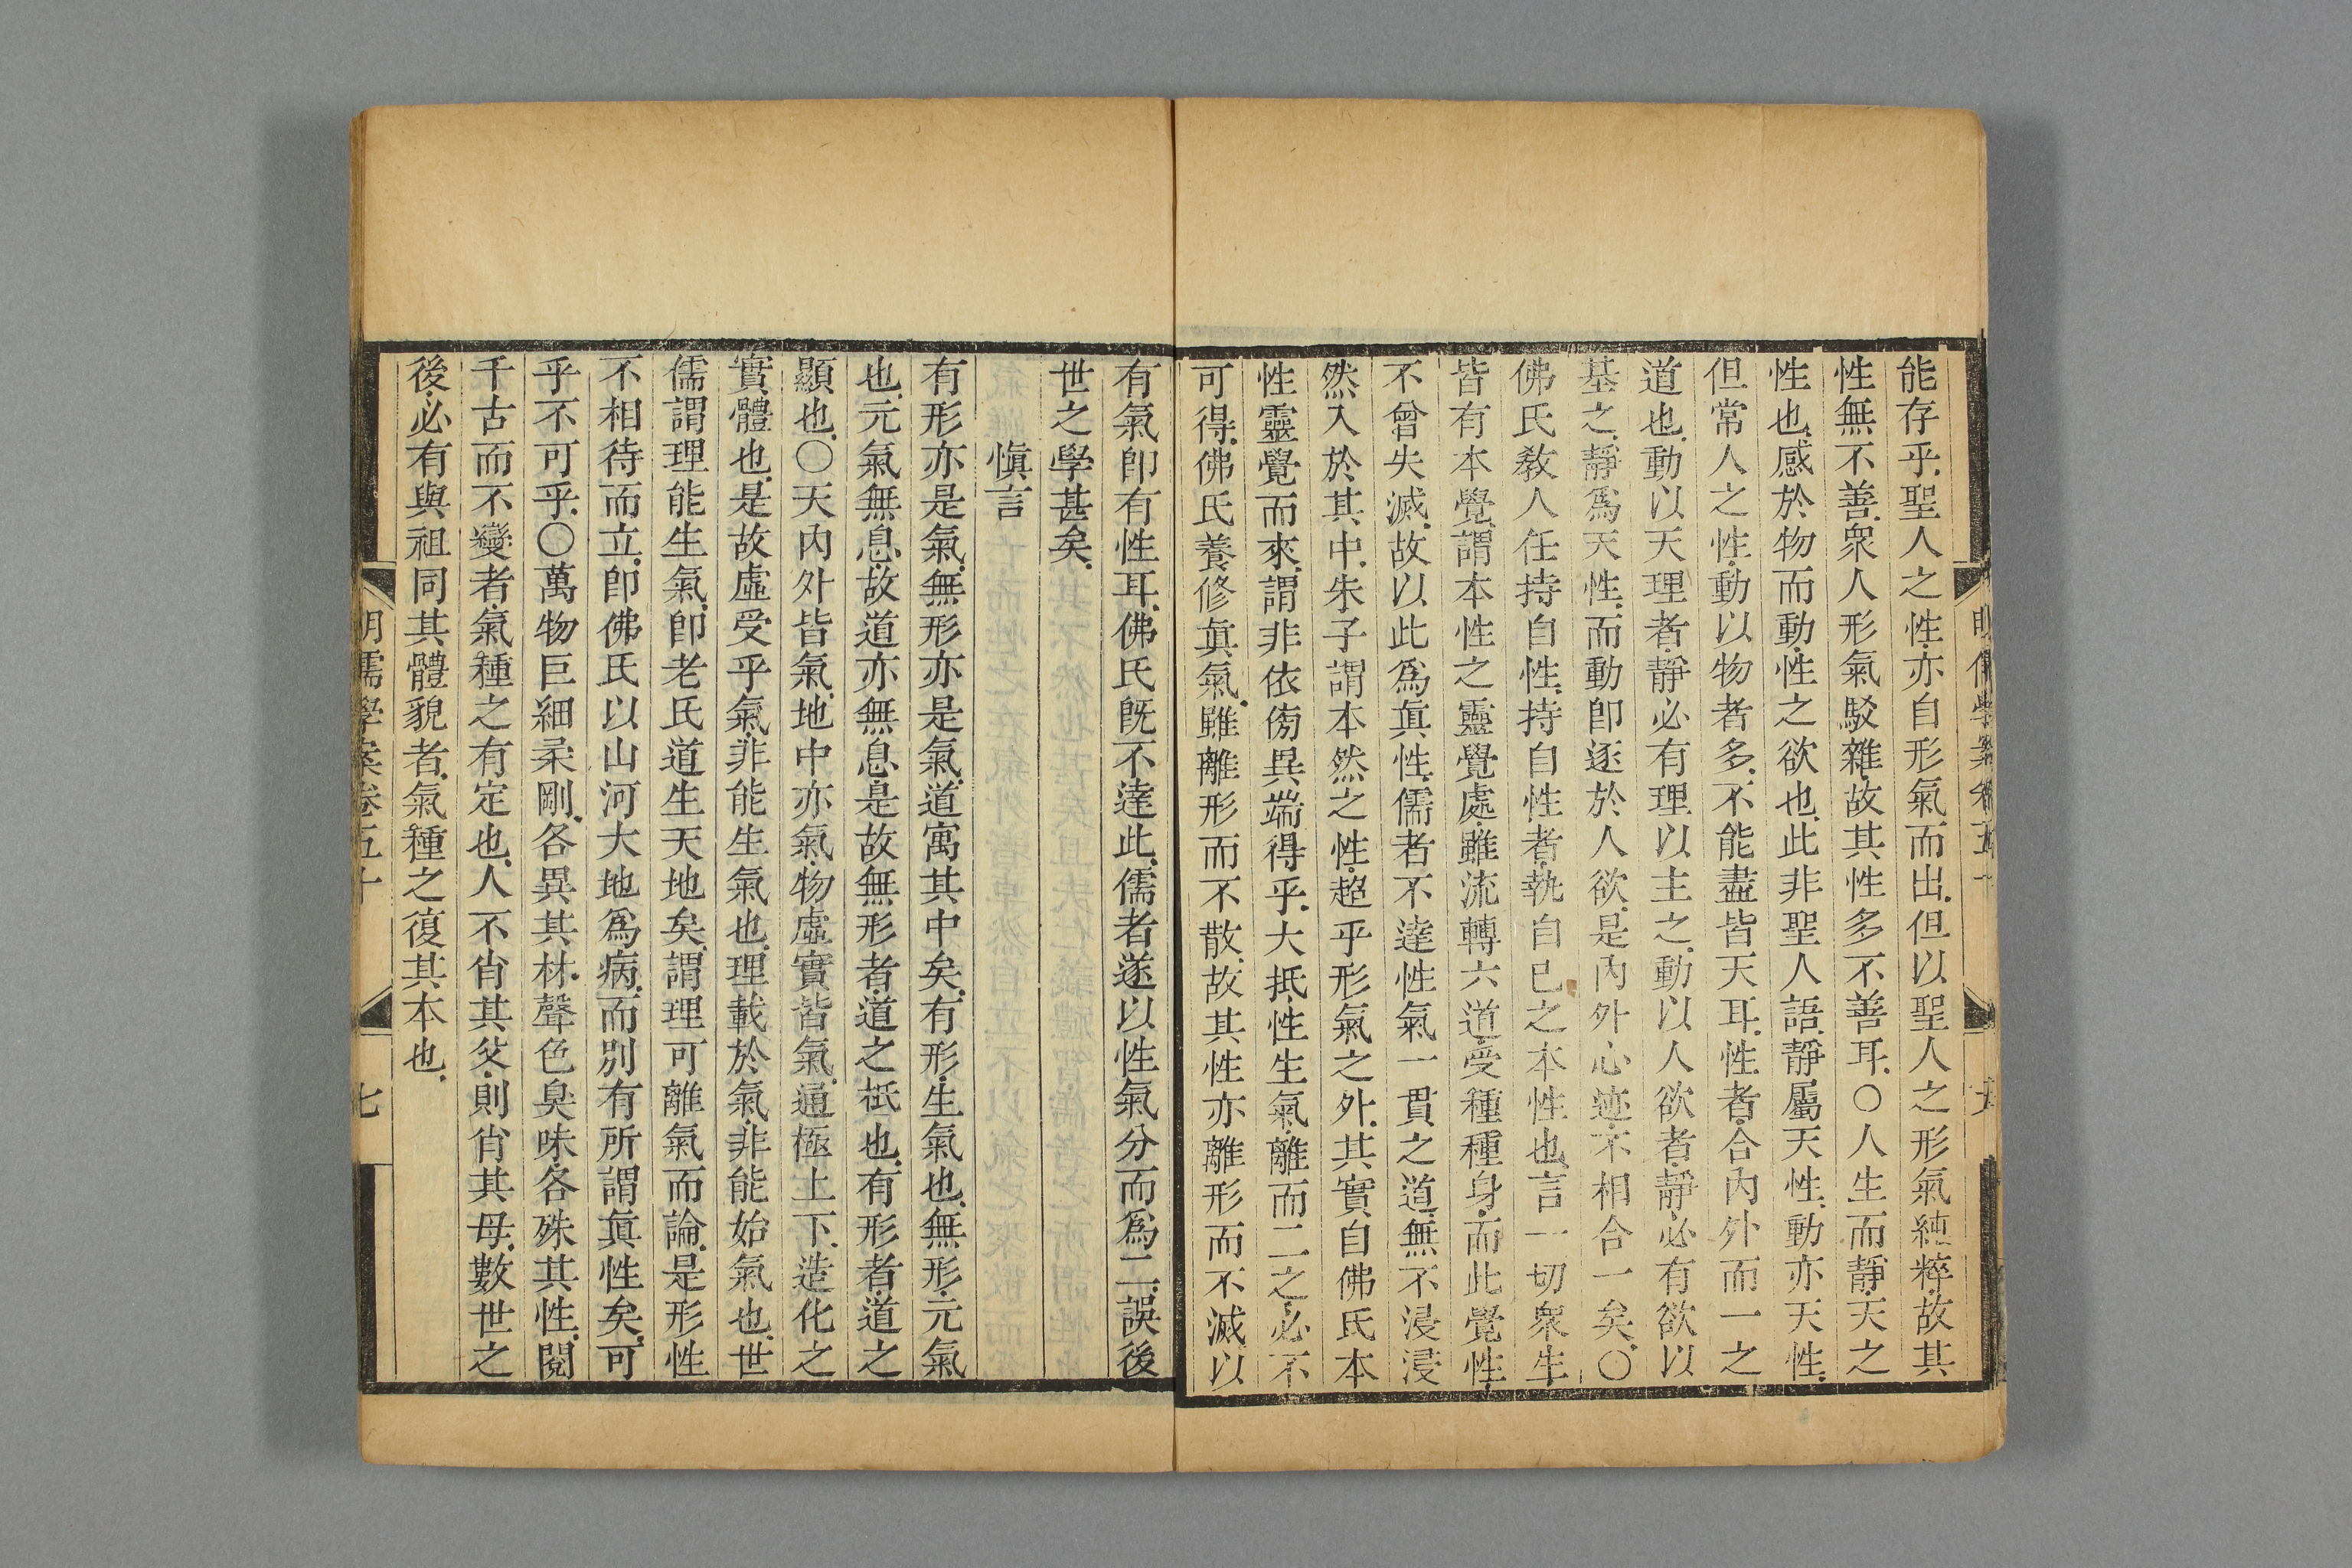 能存乎聖人之性亦自形氣而出但以聖人之形氣純粹故其
性無不善衆人形氣駁雜故其性多不善耳○人生而靜天之
性也感於物而動性之欲也此非聖人語靜屬天性動亦天性
但常人之性動以物者多不能盡皆天耳性者合內外而一之
道也動以天理者靜必有理以主之動以人欲者靜必有欲以
基之靜爲天性而動卽逐於人欲是內外心迹不相合一矣○
佛氏敎人任持自性持自性者執自已之本性也言一切衆生
皆有本覺謂本性之靈覺處雖流轉六道受種種身而此覺性
不曾失滅故以此爲眞性儒者不達性氣一貫之道無不浸浸
然入於其中朱子謂本然之性超乎形氣之外其實自佛氏本
性靈覺而來謂非依傍異端得乎大抵性生氣離而二之必不
可得佛氏養修眞氣雖離形而不散故其性亦離形而不滅以
有氣卽有性耳佛氏旣不達此儒者遂以性氣分而爲二誤後
世之學甚矣
愼言
有形亦是氣無形亦是氣道寓其中矣有形生氣也無形元氣
也元氣無息故道亦無息是故無形者道之柢也有形者道之
顯也○天內外皆氣地中亦氣物虛實皆氣通極上下造化之
實體也是故虛受乎氣非能生氣也理載於氣非能始氣也世
儒謂理能生氣卽老氏道生天地矣謂理可離氣而論是形性
不相待而立卽佛氏以山河大地爲病而別有所謂眞性矣可
乎不可乎○萬物巨細柔剛各異其材聲色臭味各殊其性閱
千古而不變者氣種之有定也人不肖其父則肖其母數世之
後必有與祖同其體貌者氣種之復其本也
明儒學案卷五十
七